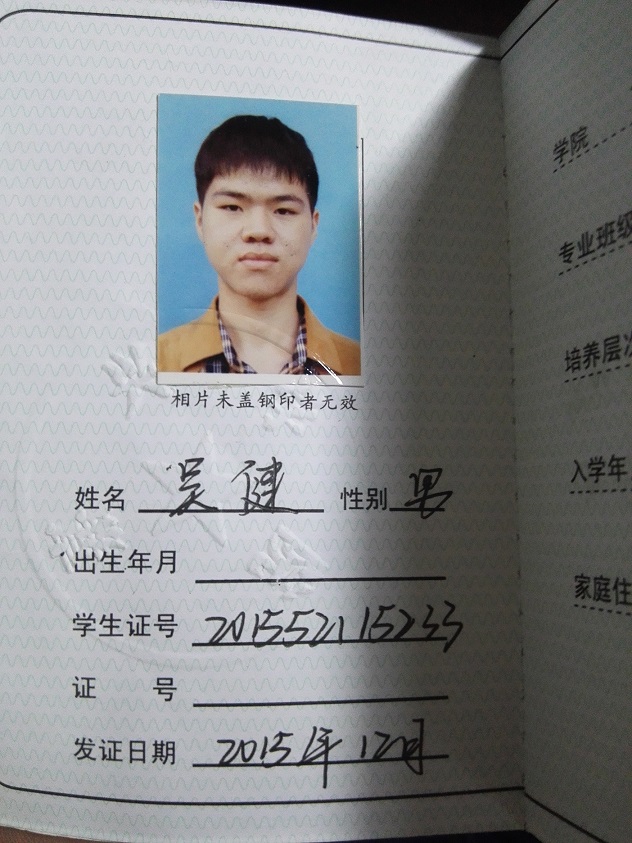 相片未盖钢印者无效
姓名 吴健 性别 男
出生年月
学生证号 201552115233
证 号
发证日期 2015年12月
学院
专业班级
培养层
入学年
家庭住